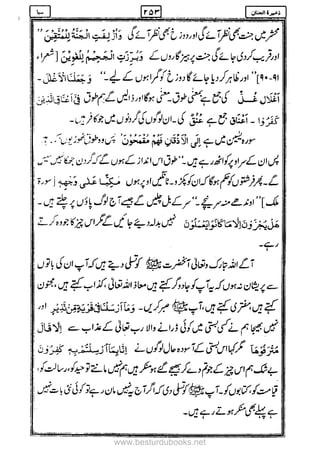 ذخیرة الجنان
۲۵۳
سبا
محشر میں جنت بھی نظر آئے گی اور دوزخ بھی نظر آئے گی وَاُزْلِفَتِ الْجَنَّةُ لِلْمُتَّقِيْنَ "
اور قریب کردی جائے گی جنت پرہیزگاروں کے وَبُرِّزَتِ الْجَحِيْمُ لِلْغٰوِيْنَ [شعراء
۹۰-۹۱]" اور ظاہر کردیا جائے گا دوزخ کو گمراہوں کے لیے۔" وَجَعَلْنَا الْاَغْلٰلَ ۔
اَغْلَال غُلّ کی جمع ہے بمعنی طوق۔ معنی ہوگا اور ڈالیں گے ہم طوق فِيْٓ اَعْنَاقِ الَّذِيْنَ
كَفَرُوْا ۔ اَعْنَاق جمع ہے عُنُقٌ کی۔ ان لوگوں کی گردنوں میں جو کافر ہیں۔
سورہ یٰسین میں ہے اِلَى الْاَذْقَانِ فَهُمْ مُّقْمَحُوْنَ پس وہ طوق
پس ان کے سر اوپر کو اٹھ رہے ہیں۔" طوق اس انداز کے ہوں گے کہ گردن جھکا نہیں سکیں
گے۔ پھر فرشتوں کو حکم ہوگا کہ ان کو پکڑو۔ ٹانگیں اوپر ہوں مُكِبًّا عَلٰى وَجْهِهٖٓ [سورۃ
ملک]" اوندھے منہ سر نیچے۔" سر کے بل چلیں گے جیسے آج لوگ پاؤں پر چلتے ہیں۔
هَلْ يُجْزَوْنَ اِلَّا مَا كَانُوْا يَعْمَلُوْنَ نہیں بدلہ دیے جائیں گے مگر اس چیز کا جو وہ کرتے
رہے۔
آگے اللہ تبارک وتعالیٰ آنحضرت ﷺ کو تسلی دیتے ہیں کہ آپ ان کی باتوں
سے پریشان نہ ہوں کہ یہ آپ کو جادوگر کہتے ہیں معاذ اللہ تعالیٰ، کذاب کہتے ہیں، مجنون
کہتے ہیں، مفتری کہتے ہیں، آپ ﷺ صبر کریں۔ وَمَآ اَرْسَلْنَا فِيْ قَرْيَةٍ مِّنْ نَّذِيْرٍ اور
نہیں بھیجا ہم نے کسی بستی میں کوئی ڈرانے والا رب تعالیٰ کے عذاب سے اِلَّا قَالَ
مُتْرَفُوْهَآ مگر کہا اس بستی کے آسودہ حال لوگوں نے اِنَّا بِمَآ اُرْسِلْتُمْ بِهٖ كٰفِرُوْنَ
بے شک ہم اس چیز کے جو تم دے کر بھیجے گئے ہو منکر ہیں ہم نہیں مانتے توحید کو، رسالت کو،
قیامت کو، کتابوں کو۔ آپ ﷺ کو تسلی دی کہ اگر آج یہ نہیں مان رہے تو کوئی نئی بات نہیں
ہے پہلے بھی منکر ہوتے رہے ہیں۔
www.besturdubooks.net